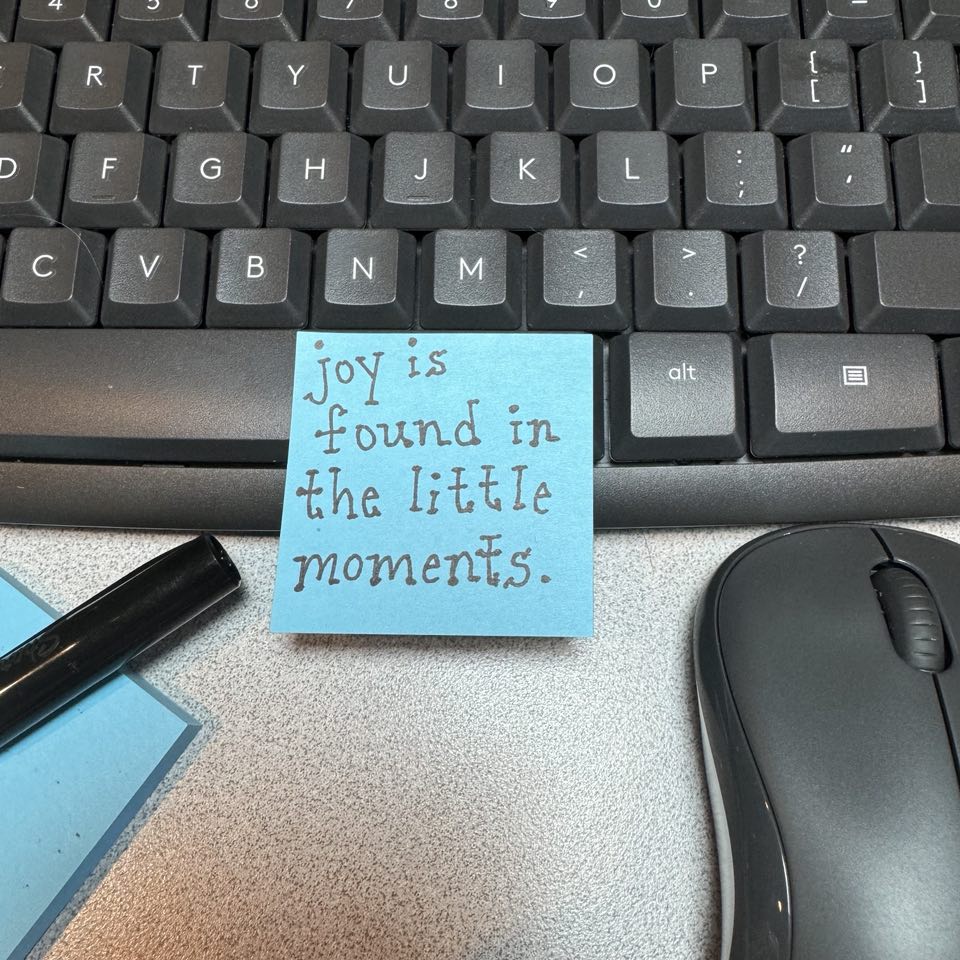 4 5 6 7 8 9 0 –
R T Y U I O P { [ } ]
D F G H J K L : ; “ ‘
C V B N M < , > . ? /
alt
joy is
found in
the little
moments.